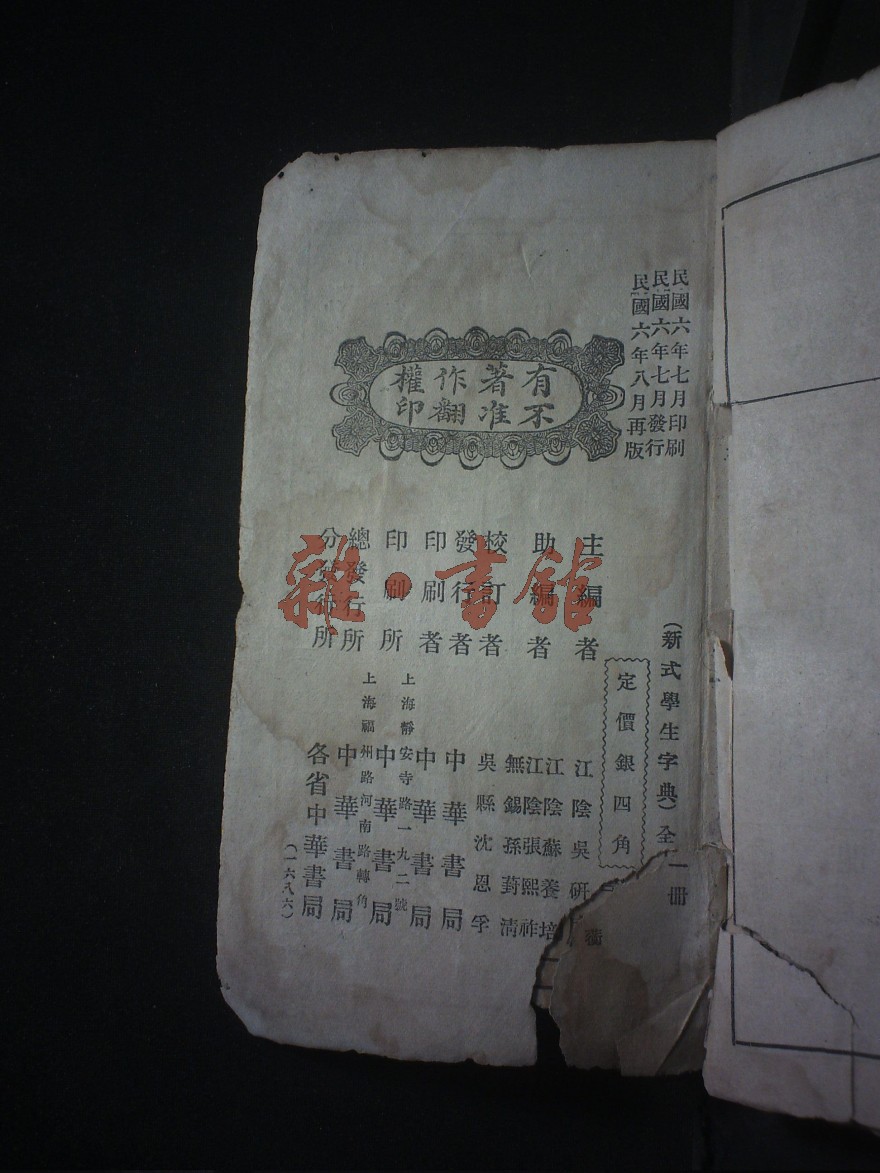 民國六年七月印刷
民國六年七月發行
民國六年八月再版
有著作權
不准翻印
（新式學生字典）全一冊
定價銀四角
主編者 江陰吳研
助編者 江陰蘇養培
江陰張熙祚
無錫孫葑清
校訂者 吳縣沈恩孚
發行者 中華書局
印刷者 中華書局
上海靜安寺路一九二號
印刷所 中華書局
上海福州路河南路轉角
總發行所 中華書局
分發行所 各省中華書局
（一六八六）
雜·書館